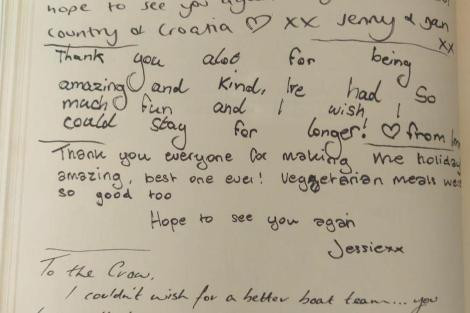 hope to see you again
country of Croatia ♡ xx Jenny & Jan
xx
Thank you also for being
amazing and kind, I've had so
much fun and I wish I
could stay for longer! ♡ from
Thank you everyone for making me holiday
amazing, best one ever! Veggetarian meals were
so good too
Hope to see you again
Jessiexx
To the Crow,
I couldn't wish for a better boat team... you